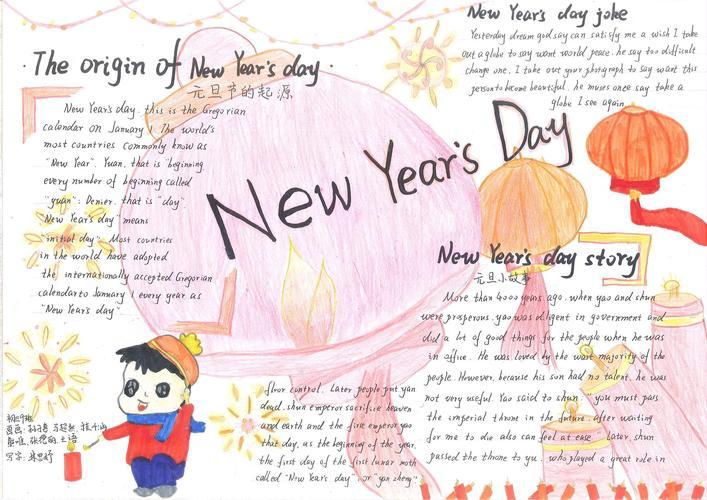 New Year's day joke
Yesterday dream god say can satisfy me a wish I take
out a globe to say want world peace. he say too difficult
change one. I take out your photgraph to say want this
person to become beautiful. he muses once say take a
globe I see again
The origin of New Year's day
元旦节的起源
New Year's day. this is the Gregorian
calendar on January 1 The world's
most countries commonly know as
"New Year". Yuan. that is "beginning,
every number of beginning called
"yuan"; Denier. that is "day".
New Year's day" means
"initial day". Most countries
in the world have adopted
the internationally accepted Gregorian
calendar to January 1 every year as
"New Year's day"
New Year's Day
New Year's day story
元旦小故事
More than 4000 years ago. when yao and shun
were prosperous. yao was diligent in government and
did a lot of good things for the people when he was
in office. He was loved by the vast majority of the
people. However, because his son had no talent. he was
not very useful. Yao said to shun: "you must pass
the imperial throne in the future. after waiting
for me to die also can feel at ease" Later shun
passed the throne to yu. who played a great role in
floor control. Later people put yan
dead. shun emperor sacrifice heaven
and earth and the fire emperor yao
that day. as the beginning of the year.
the first day of the first lunar moth
called "New Year's day". or "yan zheng".